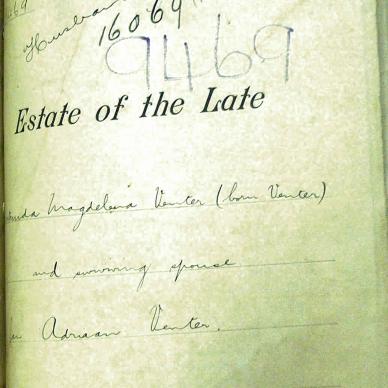 69
Husban
16069
9469
Estate of the Late
Magdelena Venter (born Venter)
and surviving spouse
Adriaan Venter.